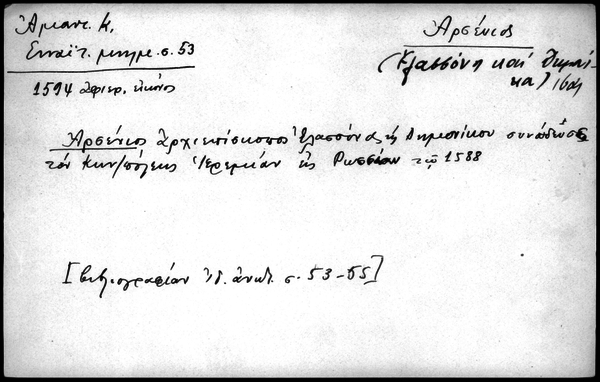 Ἀμαντ. Κ.
Σιναϊτ. μνημ. σ. 53
1594 ἀφιερ. εἰκόνος
Ἀρσένιος
(Ἐλασσόνος καὶ Δημονίκου)
Ἀρσένιος Ἀρχιεπίσκοπος Ἐλασσόνος ἢ Δημονίκου συνώδευσε
τὸν Κων/πόλεως Ἱερεμίαν εἰς Ρωσσίαν τῷ 1588
[Βιβλιογραφίαν ἰδ. ἀνωτ. σ. 53-55]